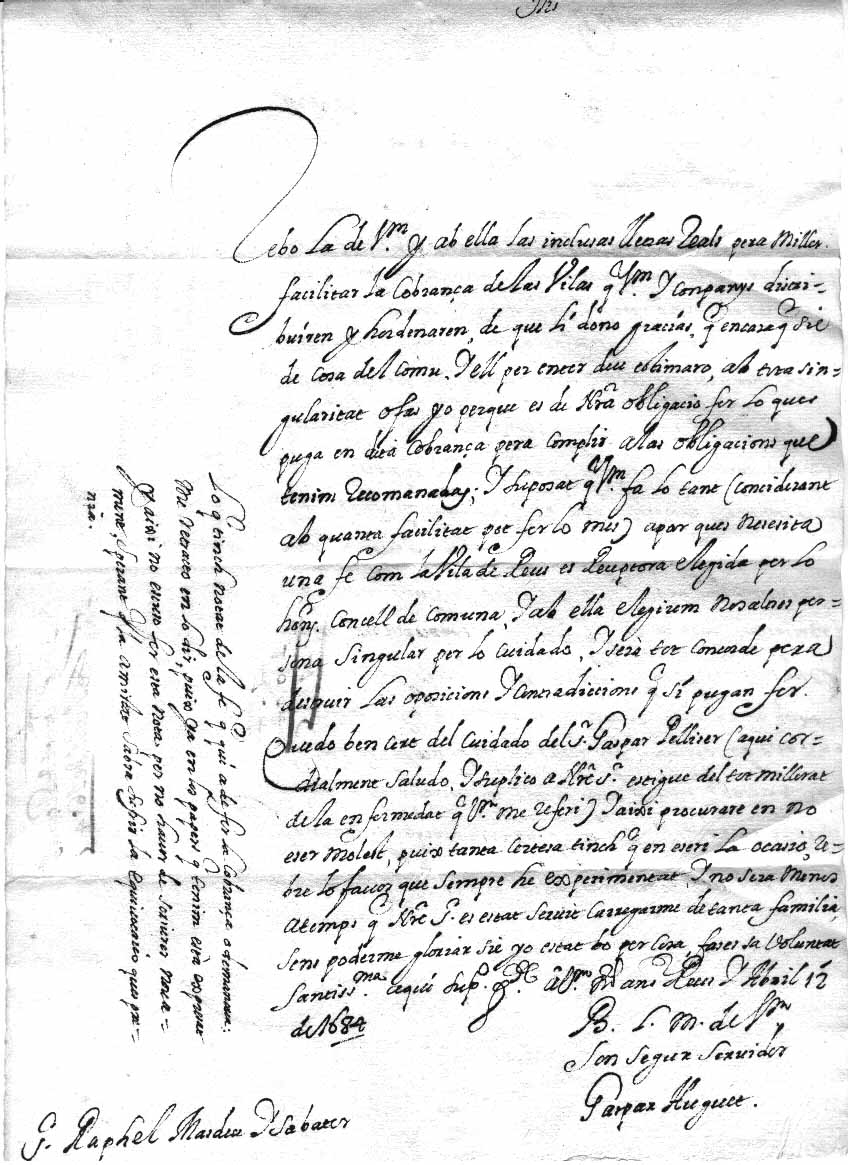 Jhs
Rebo la de Vm. y ab ella las inclusas lletras Reals pera Millor
facilitar la Cobrança de las Vilas q Vm. Y Conpanys distri-
buiren y hordenaren, de que li dono gracias, q encara q sie
de Cosa del Comu, Y ell per enter deu estimaro, ab esta sin-
gularitat ofas yo perque es de Nra obligacio fer lo ques
puga en dita Cobrança pera Complir alas obligacions que
tenim Recomanadas; Y suposat q Vm. fa lo tant (Conciderant
ab quanta facilitat pot fer lo mes) apar ques Nesesita
una fe Com la Vila de Reus es Receptora elegida per lo
hons. Concell de Comuna, Y ab ella elegirem Nosaltres per-
sona Singular per lo Cuidado, Y sera tot Concorde pera
destruir las oposicions Y Contradiccions q si pugan fer.
Quedo ben Cert del Cuidado del Sr. Gaspar Pelliser (aqui Cor-
dialment Saludo, Y suplico a Nre Sr. estigue del tot millorat
de la enfermedat q Vm. me referi) Y aixi procurare en no
eser Molest, puix tanta Certesa tinch q en eseri la ocasio, Re-
bre lo favor que sempre he experimentat, Y no sera Menos
atemps q Nre Sr. es estat servit Carregarme de tanta familia,
sens poderme gloriar sie yo estat bo per Cosa, fases sa Voluntat
Santissma. aqui Sup. gde a Vm. Ms ans Reus Y Abril 12
de 1684
B. L. M. de Vm
Son segur servidor
Gaspar Huguet.
Sr. Raphel Mardeu Y Sabater
Lo q tinch Notat de la fe q qui a de fer la Cobrança o demanar;
Me Retracto en lo dit, puix ya en los papers q tenim està expresat
Y aixi no escric fer esta Nota per no haver de escriurer Nova-
ment, Sperant q sa amistat Sabra suplir la equivocatio ques pre-
nia.